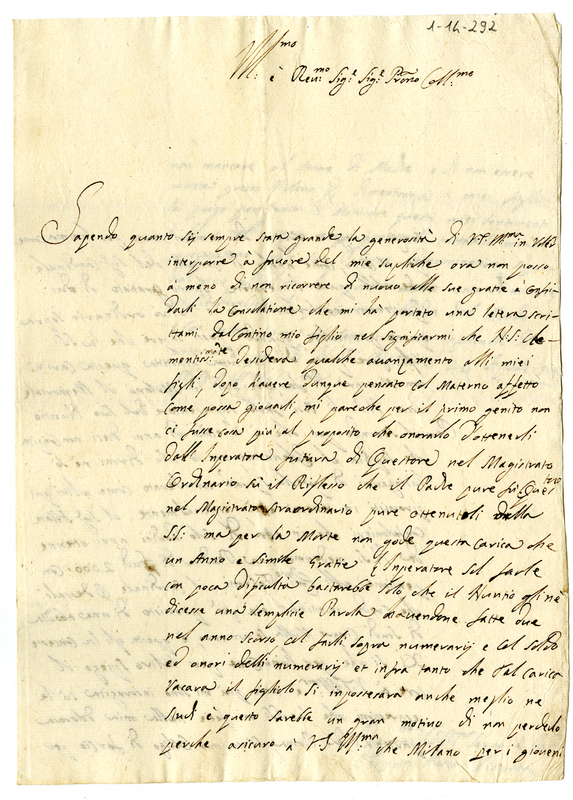 1-14-292
Ill:mo
è Reu:mo Sig:r Sig:r Prōne Coll:mo
Sapendo quanto sij sempre stata grande la generosità di V.S. Ill:ma in
interporre à fauore del mie supliche ora non posso
à meno di non ricorrere di nuouo alle sue gratie è Confi-
darli la Consolatione che mi hà portato una letera scri-
ttami dal Contino mio figlio nel Significarmi che N: S: Cle-
mentis:te desidera qualche auanzamento alli miei
figli, dopo d'auere dunque pensato col Materno affetto
Come possa giouarli, mi pare che per il primo genito non
ci fusse cosa più al proposito che onorarlo d'ottenerli
dall'Inperatore futura di Questore nel Magistrato
Ordinario si il Riflesso che il Padre pure fù Ques tore
nel Magistrato straordinario pure ottenutoli dalla
S: S: ma per la Morte non gode questa Carica che
un Anno è simile Gratie l'Inperatore Sol facle
con poca dificultà bastarebbe solo, che il Nuntio gli nè
dicesse una semplicie Parola auendone fatte due
nel anno scorso col farli sopra numerarij e Col Soldo
ed onori delli numerarij et infra tanto che tal Carica
Vacara il figliolo si inpossesara anche meglio ne
Studi è questo sarebbe un gran motiuo di non perderlo
perche asicuro à V.S. Ill:ma che Milano per i gioueni